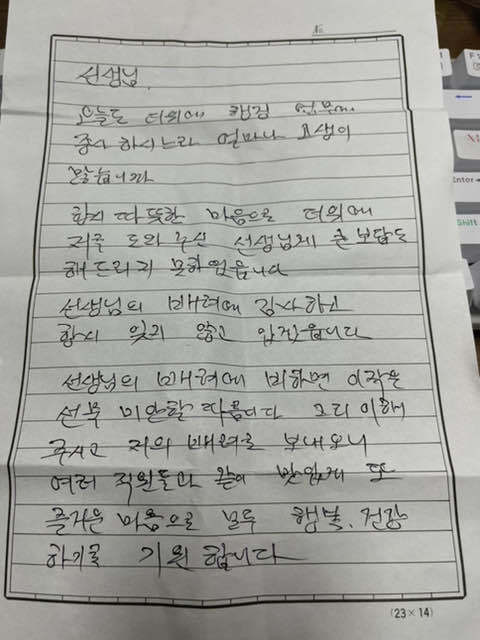 No
선생님
오늘도 더위에 현장 업무에
종사 하시느라 얼마나 고생이
많습니까
항시 따뜻한 마음으로 더위에
저를 도와 주신 선생님께 큰 보답도
해드리지 못하였읍니다
선생님의 배려에 감사하고
항시 잊지 않고 있겠읍니다
선생님의 배려에 비하면 이작은
선물 미안할 따름이다 그리 이해
주시고 저의 배려를 보내오니
여러 직원들과 같이 맛있게 또
즐거운 마음으로 모두 행복, 건강
하기를 기원 합니다
(23×14)
Enter
Shift